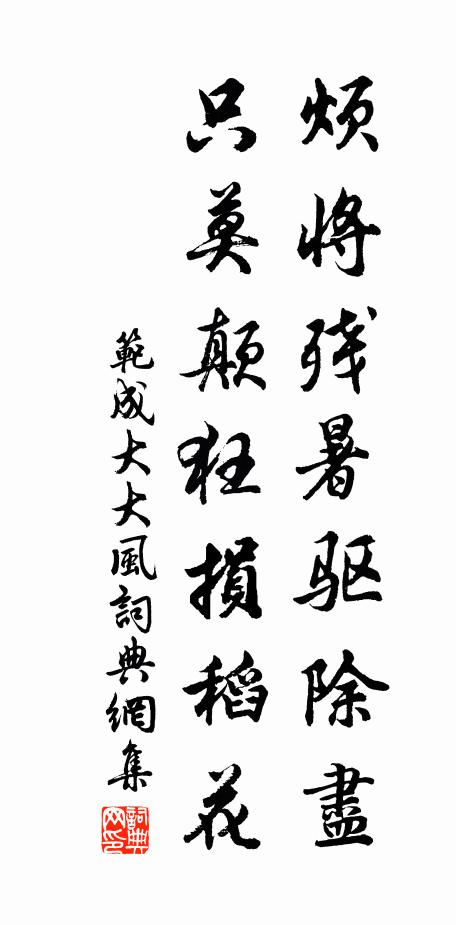 烦将残暑驱除盡
只莫颠狂損稻花
範成大大風詞典網集
詞典网印